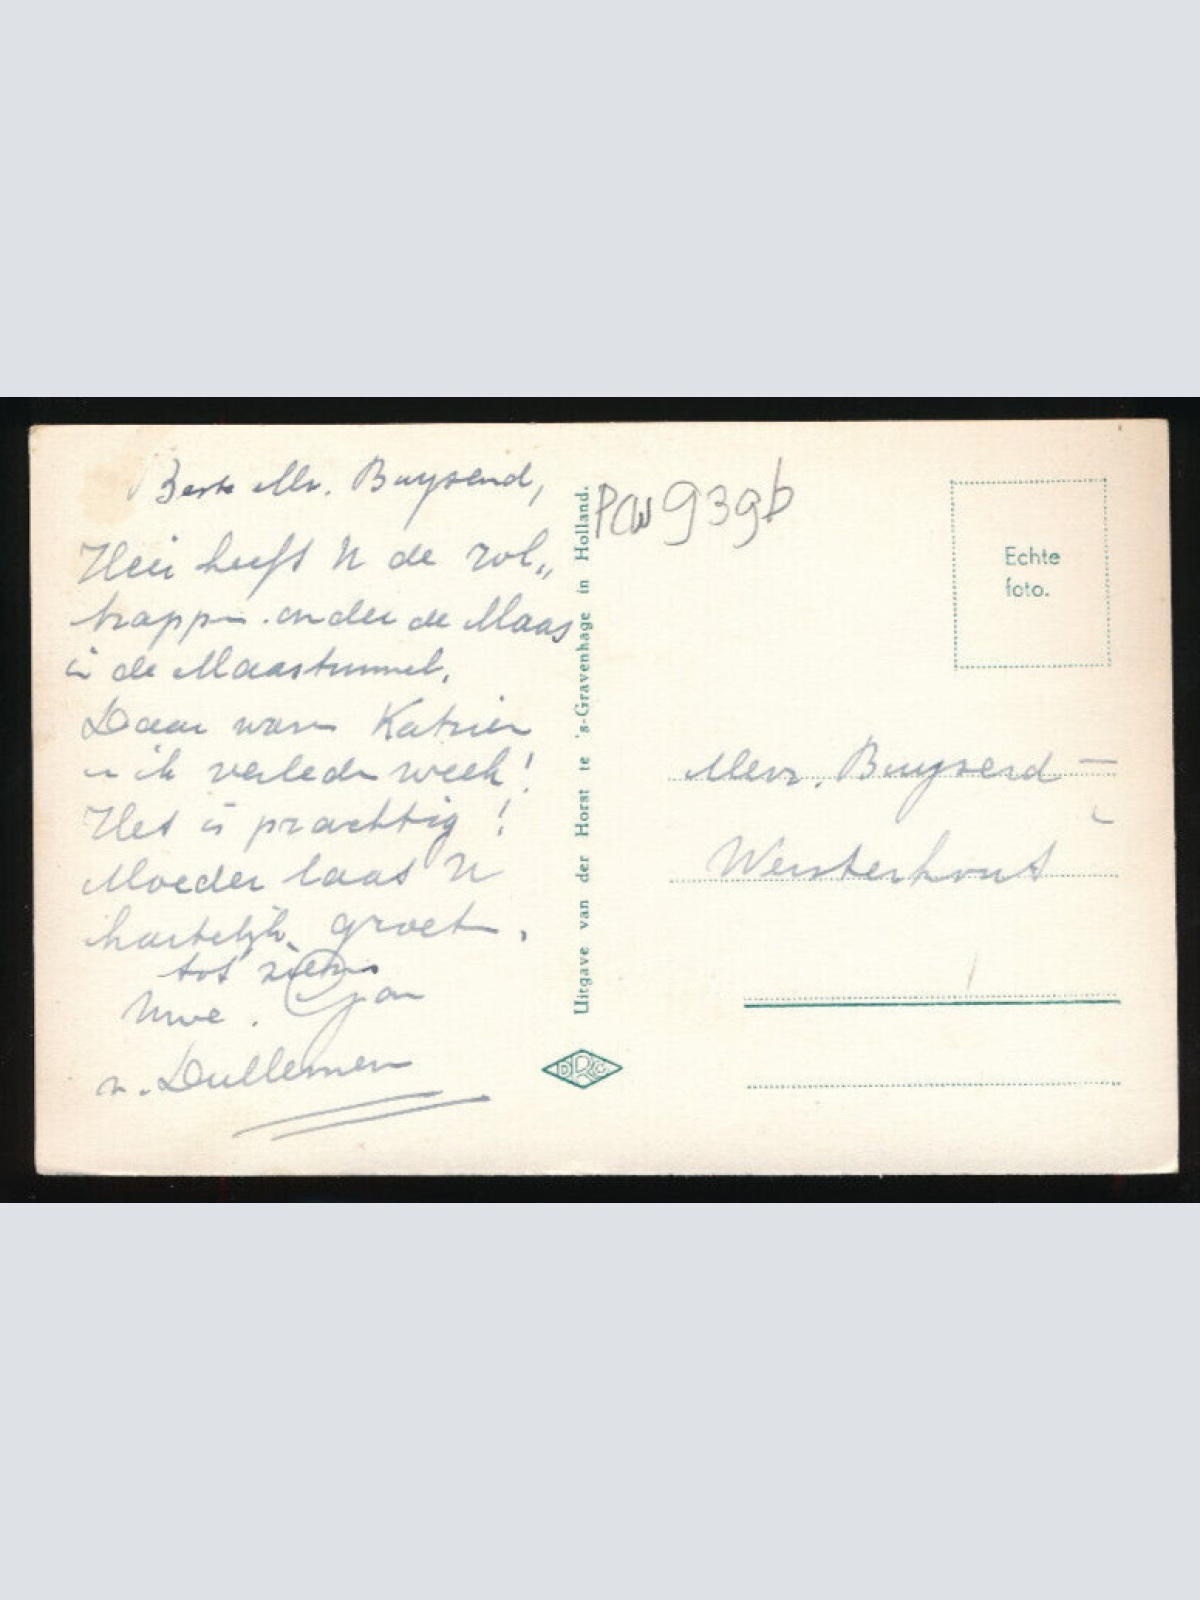 Beste Mr. Buysend,
Hier heeft U de rol„
trappen onder de Maas
in de Maastunnel.
Daar waren Katrien
en ik verleden week!
Het is prachtig!
Moeder laat U
hartelijk groeten.
tot ziens
Uwe. Jan
v. Dullemen
Uitgave van der Horst te 's-Gravenhage in Holland.
PCW939b
Echte
foto.
Mevr. Buyserd -
Westerhout